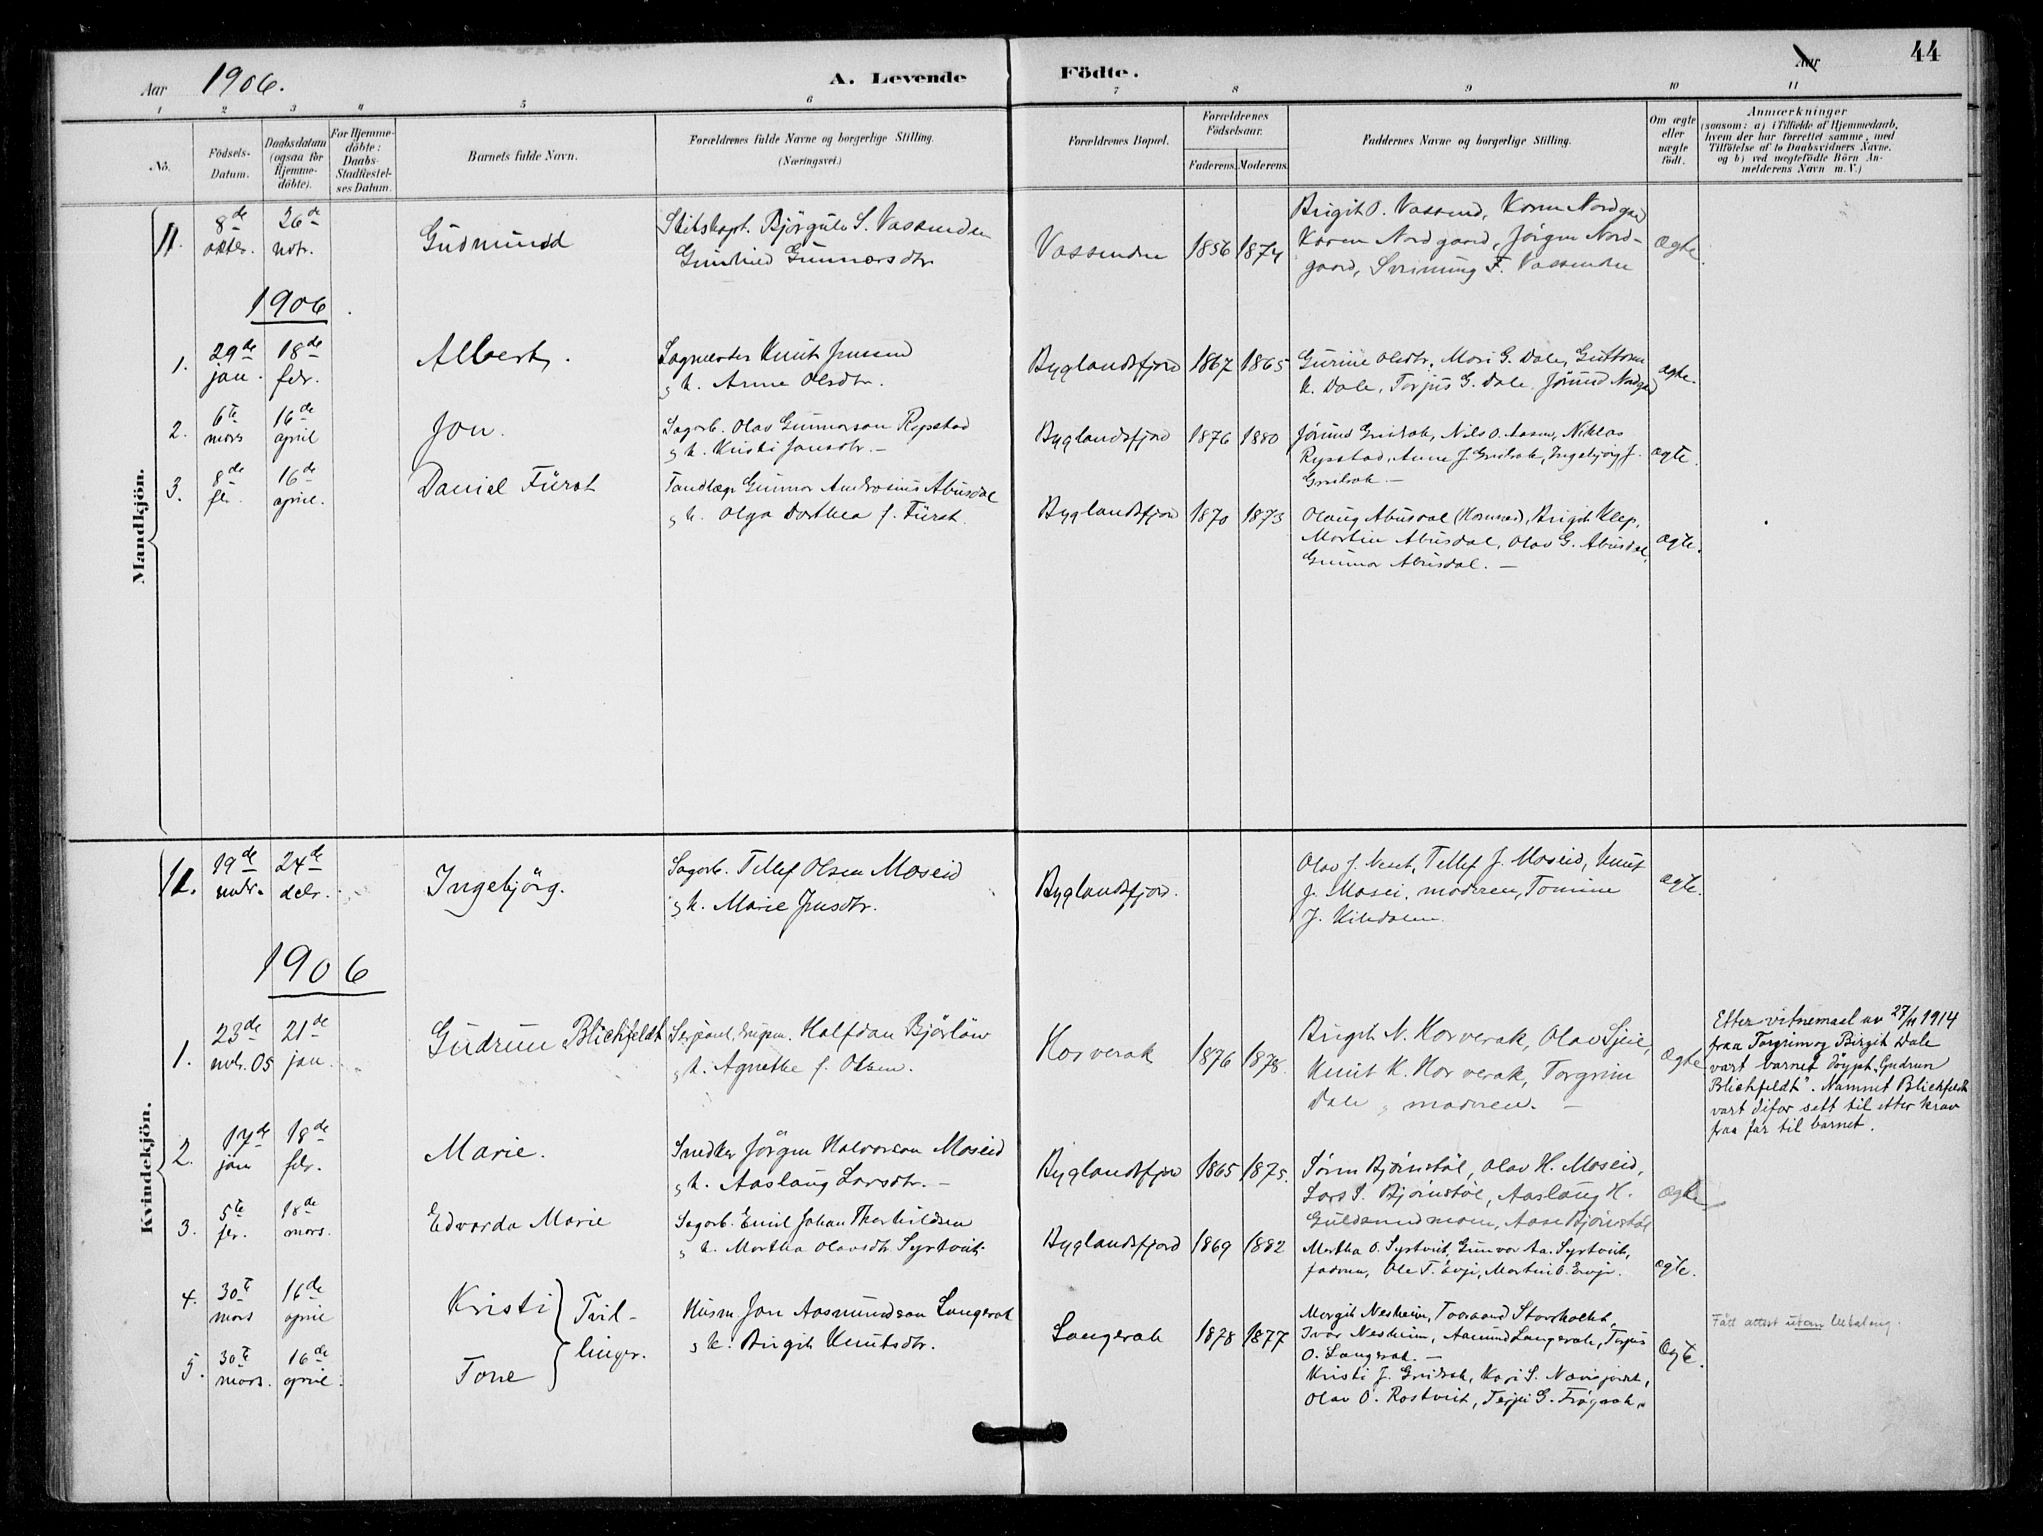 Aar 1906. A. Levende Födte. Aar 44
1 2 3 4 5 6 7 8 9 10 11
No.
Födsels-
Datum.
Daabsdatum
(ogsaa for
Hjemme-
döbte).
For Hjemme-
döbte:
Daabs-
Stadfæstel-
ses Datum.
Barnets fulde Navn.
Forældrenes fulde Navne og borgerlige Stilling.
(Næringsvei.)
Forældrenes Bopæl.
Forældrenes
Födselsaar.
Faderens. Moderens.
Faddernes Navne og borgerlige Stilling.
Om ægte
eller
uægte
födt.
Anmærkninger
(saasom: a) i Tilfælde af Hjemmedaab,
hvem der har forrettet samme, med
Tilföielse af to Daabsvidners Navne.
og b) ved uegtefödte Börn An-
melderens Navn m. V.)
Mandkjön.
11.
8de
oktbr.
26de
nvbr.
Gudmund
Skibskapt. Björgulv S. Vassenden
Gunhild Gunnarsdtr.
Vassenden
1856 1874
Birgit O. Vassend, Karen Nordgaard
Karen Nordgaard, Jörgen Nord-
gaard, Sveinung F. Vassenden
Ægte.
1906
1.
29de
jan.
18de
febr.
Albert.
Sagmester Knut Jensen
og k. Anne Olsdtr.
Byglandsfjord
1867 1865
Gurine Olsdtr., Mari G. Dale, Guttorm
K. Dale, Torjus G. Dale, Jörund Nordgaard
ægte.
2.
6te
mars
16de
april
Jon.
Sagarb. Olav Gunnarson Rysstad
og k. Kristi Jonsdtr. —
Byglandsfjord
1876 1880
Jörund Greibrok, Nils O. Aasen, Niklas
Rysstad, Anne J. Greibrok, Ingebjörg J.
Greibrok —
ægte.
3.
8de
fbr.
16de
april.
Daniel Fürst
Tandlæge Gunnar Ambrosius Abusdal
og k. Olga Dorthea f. Fürst.
Byglandsfjord
1870 1873
Olaug Abusdal (Hornnes), Birgit Klep,
Martin Abusdal, Olav G. Abusdal,
Gunnar Abusdal. —
ægte.
Kvindekjön.
12.
19de
nvbr.
24de
debr.
Ingebjörg.
Sagarb. Tellef Olsen Moseid
og k. Marie Jensdtr.
Byglandsfjord.
Olav J. Neset, Tellef J. Moseid, Knut
J. Mosei, moderen, Tomine
J. Kiledalen.
ægte.
1906
1.
23de
nvbr. 05
21de
jan.
Gudrun Blichfeldt
Serjeant, Halfdan Björlöw
og k. Agnethe f. Olsen.
Horverak
1876 1878.
Birgit N. Horverak, Olav Sjeie,
Knut K. Horverak, Torgrim
Dale, moderen. —
Ægte
Etter vitnemaal av 27/11 1914
fraa Torgrim og Birgit Dale
vart barnet döypt "Gudrun
Blichfeldt". Namnet Blichfeldt
vart difor sett til etter krav
fraa far til barnet.
2.
17de
jan
18de
febr.
Marie.
Snedker Jörgen Halvorson Moseid
og k. Aaslaug Larsdtr. —
Byglandsfjord
1865 1875.
Sören Björnstöl, Olav H. Moseid,
Lars S. Björnstöl, Aaslaug H.
Guldsmedmoen, Aase Björnstöl
Ægte
3.
5te
fbr.
18de
mars.
Edvarda Marie
Sagarb. Emil Johan Thorkildsen
og k. Martha Olavsdtr. Syrtveit.
Byglandsfjord
1869 1882
Martha O. Syrtveit, Gunvor Aa. Syrtveit,
faderen, Ole T. Evje, Martin O. Evje.
ægte.
4.
30te
mars
16de
april
Kristi
Tvil-
linger.
Husm Jon Aasmundson Langerak
og k. Birgit Knutsdtr.
Langerak
1878 1877
Margit Nesheim, Toraand Storrholtet,
Ivar Nesheim, Aamund Langerak, Terjus
O. Langerak. —
Ægte.
Fått attest utan betaling.
5.
30te
mars.
16de
april.
Tone
Kristi J. Greibrok, Kari S. Navesjordet,
Olav O. Rostveit, Terjei G. Fröysok.